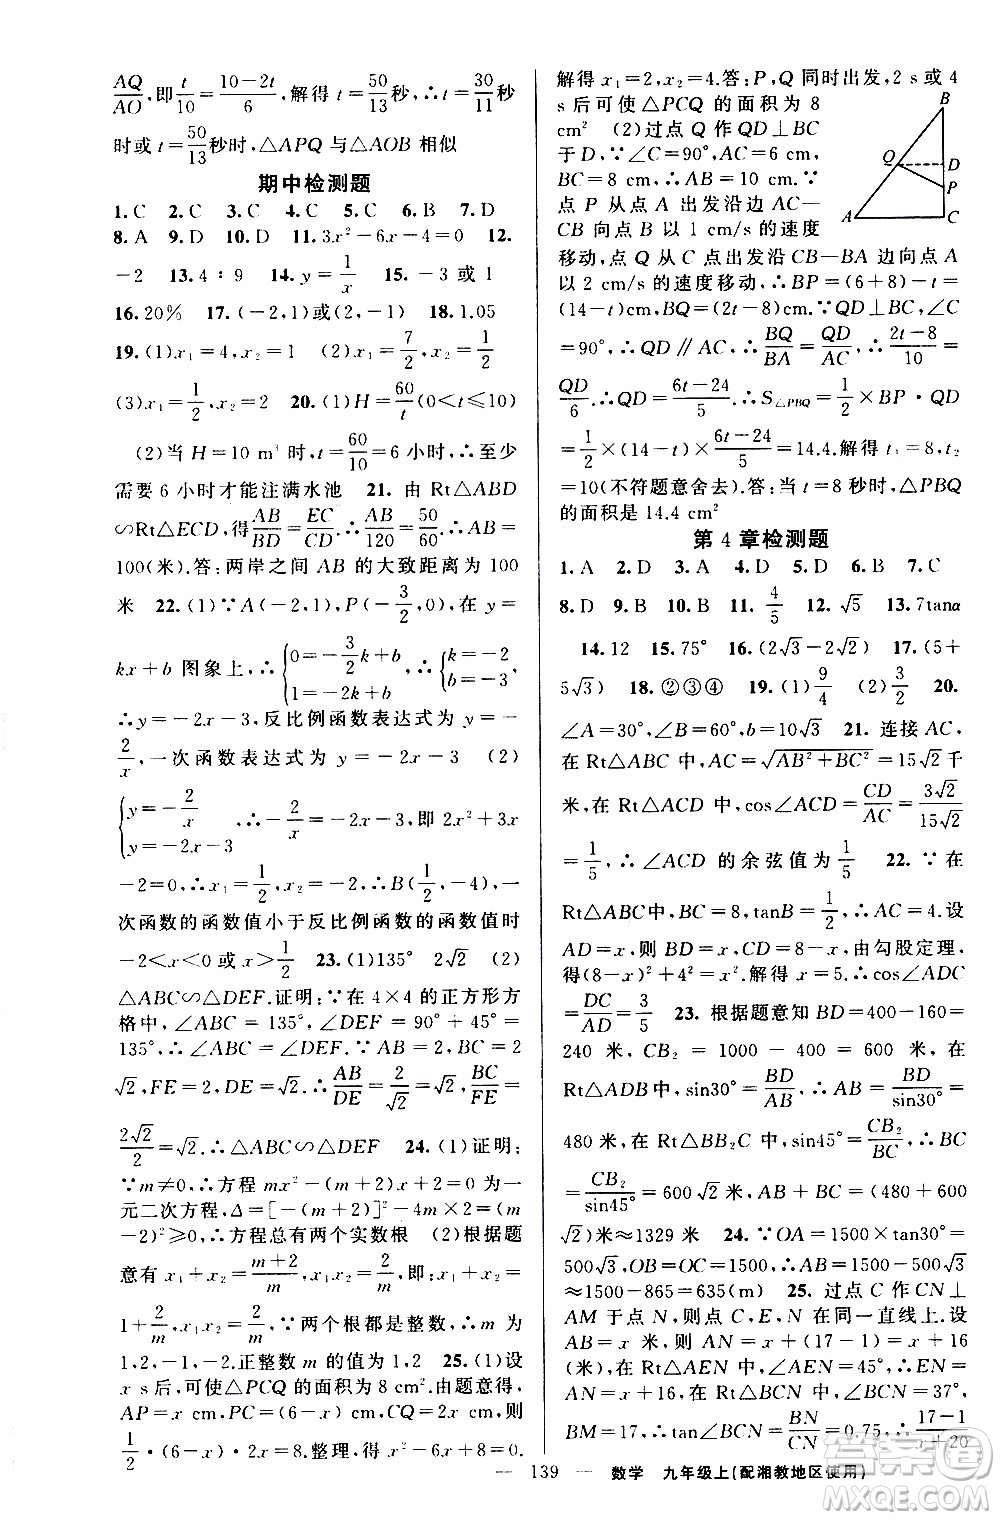 AQ/AO,即t/10=(10-2t)/6,解得t=50/13秒,∴t=30/11秒
时或t=50/13秒时,△APQ与△AOB相似
期中检测题
1.C 2.C 3.C 4.C 5.C 6.B 7.D
8.A 9.D 10.D 11.3x²-6x-4=0 12.
-2 13.4:9 14.y=1/x 15.-3或1
16.20% 17.(-2,1)或(2,-1) 18.1.05
19.(1)x₁=4,x₂=1 (2)x₁=7/2,x₂=1/2
(3)x₁=1/2,x₂=2 20.(1)H=60/t(0<t≤10)
(2)当H=10 m³时,t=60/10=6小时,∴至少
需要6小时才能注满水池 21.由Rt△ABD
∽Rt△ECD,得AB/BD=EC/CD.∴AB/120=50/60.∴AB=
100(米).答:两岸之间AB的大致距离为100
米 22.(1)∵A(-2,1),P(-3/2,0),在y=
kx+b图象上,∴{0=-3/2k+b 1=-2k+b,∴{k=-2 b=-3,
∴y=-2x-3,反比例函数表达式为y=-
2/x,一次函数表达式为y=-2x-3 (2)
{y=-2/x y=-2x-3 ∴-2/x=-2x-3,即2x²+3x
-2=0,∴x₁=1/2,x₂=-2,∴B(1/2,-4),一
次函数的函数值小于反比例函数的函数值时
-2<x<0或x>1/2 23.(1)135° 2√2 (2)
△ABC∽△DEF.证明:∵在4×4的正方形方
格中,∠ABC=135°,∠DEF=90°+45°=
135°,∴∠ABC=∠DEF.∵AB=2,BC=2
√2,FE=2,DE=√2.∴AB/DE=2/√2,BC/FE=
2√2/2=√2.∴△ABC∽△DEF 24.(1)证明:
∵m≠0,∴方程mx²-(m+2)x+2=0为一
元二次方程,Δ=[-(m+2)]²-4m×2=(m
-2)²≥0,∴此方程总有实数根 (2)根据题
意有x₁+x₂=(m+2)/m,x₁x₂=2/m,∴x₁+x₂=
1+2/m,x₁x₂=2/m,∵两个根都是整数,∴m为
1,2,-1,-2.正整数m的值为1,2 25.(1)设
x s后,可使△PCQ的面积为8 cm².由题意得,
AP=x cm,PC=(6-x)cm,CQ=2x cm,则
1/2·(6-x)·2x=8.整理,得x²-6x+8=0.
解得x₁=2,x₂=4.答:P,Q同时出发,2 s或4
s后可使△PCQ的面积为8
cm² (2)过点Q作QD⊥BC
于D,∵∠C=90°,AC=6 cm,
BC=8 cm,∴AB=10 cm.∵
点P从点A出发沿边AC-
CB向点B以1 cm/s的速度
移动,点Q从C点出发沿CB-BA边向点A
以2 cm/s的速度移动,∴BP=(6+8)-t=
(14-t)cm,BQ=(2t-8)cm.∵QD⊥BC,∠C
=90°,∴QD∥AC,∴BQ/BA=QD/AC,∴(2t-8)/10=
QD/6.∴QD=(6t-24)/5.∴S△PBQ=1/2×BP·QD=
1/2×(14-t)×(6t-24)/5=14.4.解得t₁=8,t₂
=10(不符题意舍去).答:当t=8秒时,△PBQ
的面积是14.4 cm²
B
Q
D
P
A
C
第4章检测题
1.A 2.D 3.A 4.D 5.D 6.B 7.C
8.D 9.B 10.B 11.4/5 12.√5 13.7tanα
14.12 15.75° 16.(2√3-2√2) 17.(5+
5√3) 18.②③④ 19.(1)9/4 (2)3/2 20.
∠A=30°,∠B=60°,b=10√3 21.连接AC,
在Rt△ABC中,AC=√(AB²+BC²)=15√2千
米,在Rt△ACD中,cos∠ACD=CD/AC=3√2/15√2
=1/5,∴∠ACD的余弦值为1/5 22.∵在
Rt△ABC中,BC=8,tanB=1/2,∴AC=4.设
AD=x,则BD=x,CD=8-x,由勾股定理,
得(8-x)²+4²=x².解得x=5.∴cos∠ADC
=DC/AD=3/5 23.根据题意知BD=400-160=
240米,CB₂=1000-400=600米,在
Rt△ADB中,sin30°=BD/AB,∴AB=BD/sin30°=
480米,在Rt△BB₂C中,sin45°=CB₂/BC,∴BC
=CB₂/sin45°=600√2米,∴AB+BC=(480+600
√2)米≈1329米 24.∵OA=1500×tan30°=
500√3,OB=OC=1500,∴AB=1500-500√3
≈1500-865=635(m) 25.过点C作CN⊥
AM于点N,则点C,E,N在同一直线上,设
AB=x米,则AN=x+(17-1)=x+16
(米),在Rt△AEN中,∠AEN=45°,∴EN=
AN=x+16,在Rt△BCN中,∠BCN=37°,
BM=17,∴tan∠BCN=BN/CN=0.75,∴(17-1)/(x+20)
— 139 — 数学 九年级上(配湘教地区使用)
答案圈
MXQE.COM